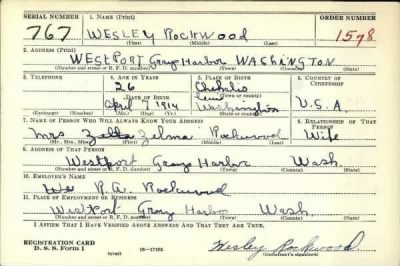 SERIAL NUMBER 1. NAME (Print) ORDER NUMBER
767 WESLEY ROCKWOOD 1578
(First) (Middle) (Last)
2. ADDRESS (Print)
WESTPORT Grays Harbor WASHINGTON
(Number and street or R. F. D. number) (Town) (County) (State)
3. TELEPHONE 4. AGE IN YEARS 5. PLACE OF BIRTH 6. COUNTRY OF CITIZENSHIP
26 Chehalis
DATE OF BIRTH Lewis (Town or county)
April 7 1914 Washington U.S.A.
(Exchange) (Number) (Mo.) (Day) (Yr.) (State or country)
7. NAME OF PERSON WHO WILL ALWAYS KNOW YOUR ADDRESS 8. RELATIONSHIP OF THAT PERSON
Mrs Zelma Rockwood Wife
(Mr., Mrs., Miss) (First) (Middle) (Last)
9. ADDRESS OF THAT PERSON
Westport Grays Harbor Wash.
(Number and street or R. F. D. number) (Town) (County) (State)
10. EMPLOYER'S NAME
R. A. Rockwood
11. PLACE OF EMPLOYMENT OR BUSINESS
Westport Grays Harbor Wash.
(Number and street or R. F. D. number) (Town) (County) (State)
I AFFIRM THAT I HAVE VERIFIED ABOVE ANSWERS AND THAT THEY ARE TRUE.
REGISTRATION CARD
D. S. S. Form 1 (over) Wesley Rockwood
(Registrant's signature)